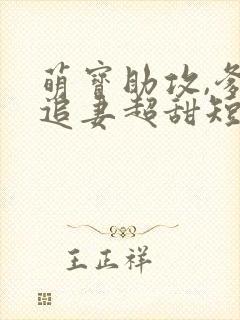 萌宝助攻,爹
追妻超甜短
王正祥